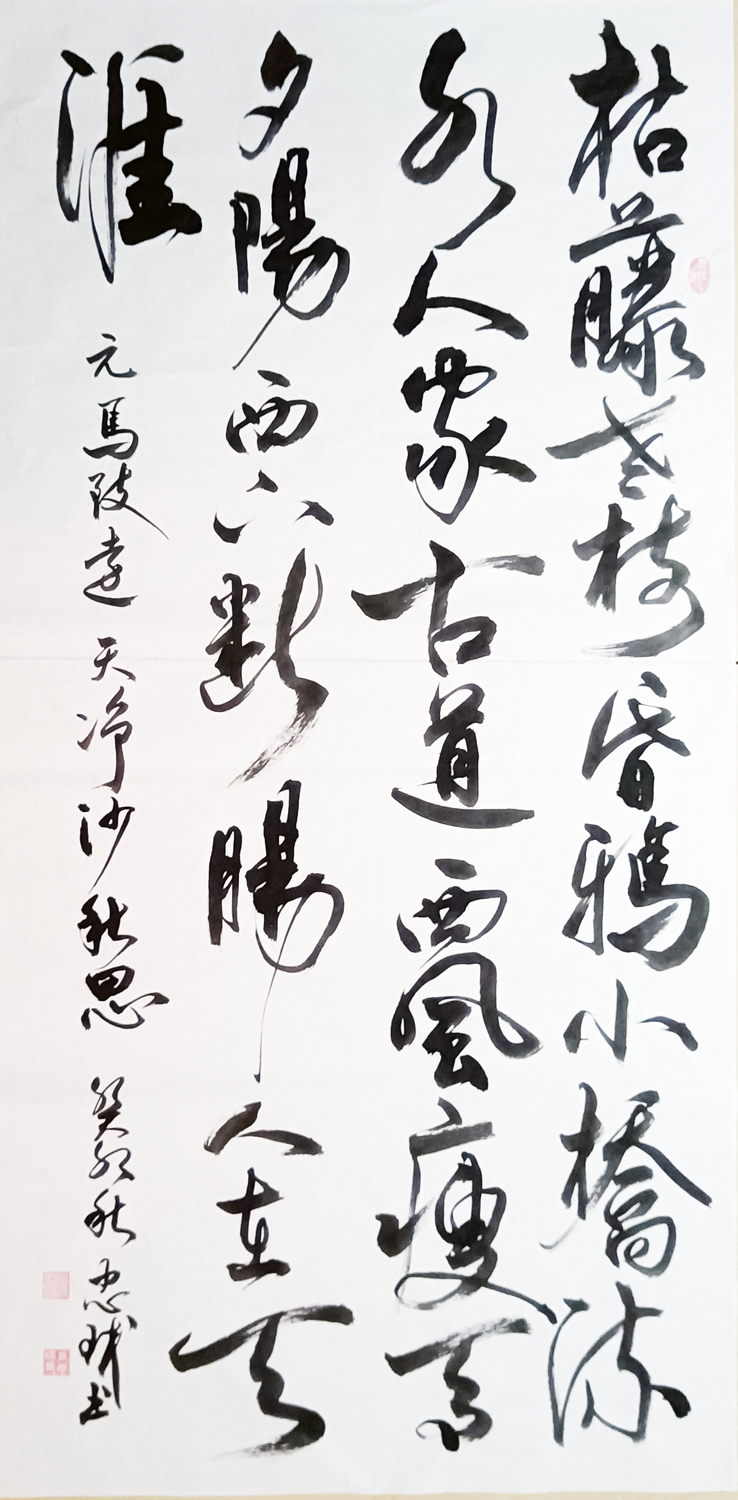 枯藤老樹昏鴉小橋流
水人家古道西風瘦馬
夕陽西下斷腸人在天
涯
元馬致遠天净沙秋思 癸卯秋忠书